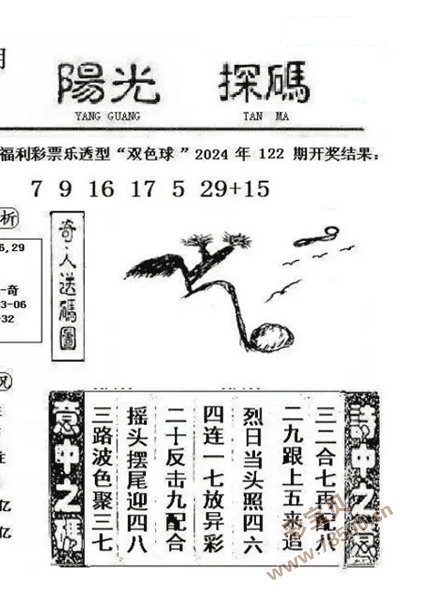 陽光 探碼
YANG GUANG TAN MA
福利彩票乐透型“双色球”2024 年 122 期开奖结果:
7 9 16 17 5 29+15
析
6,29
-奇
3-06
-32
奇人送碼圖
况
亿
亿
三二合七再配八
二九跟上五来追
烈日当头照四六
四连一七放异彩
二十反击九配合
摇头摆尾迎四八
三路波色聚三七
意中之碼
www.78500.cn